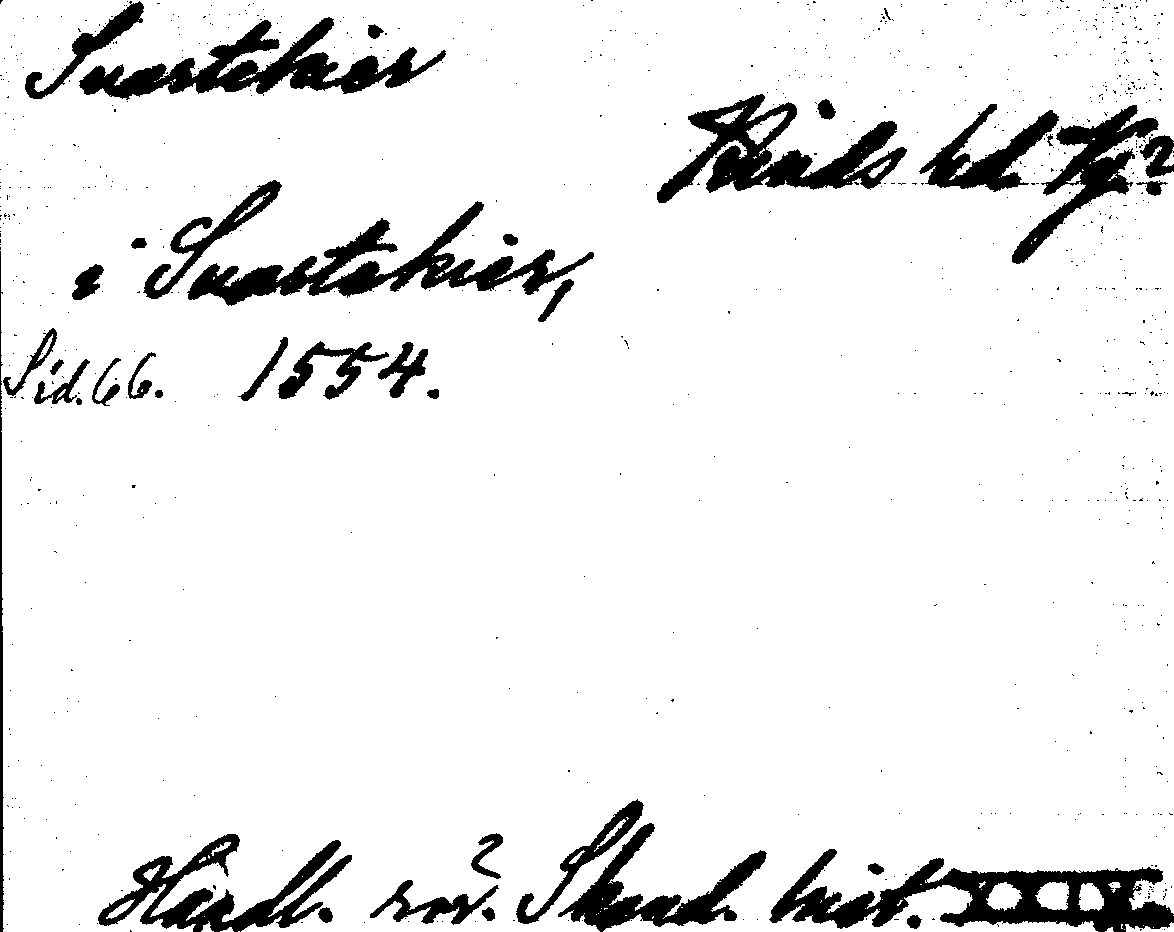 Suartekiær
Kinds hd. Vg?
i Suartekiær,
Sid. 66. 1554.
Handl. rör. Skand. hist. XXIX.